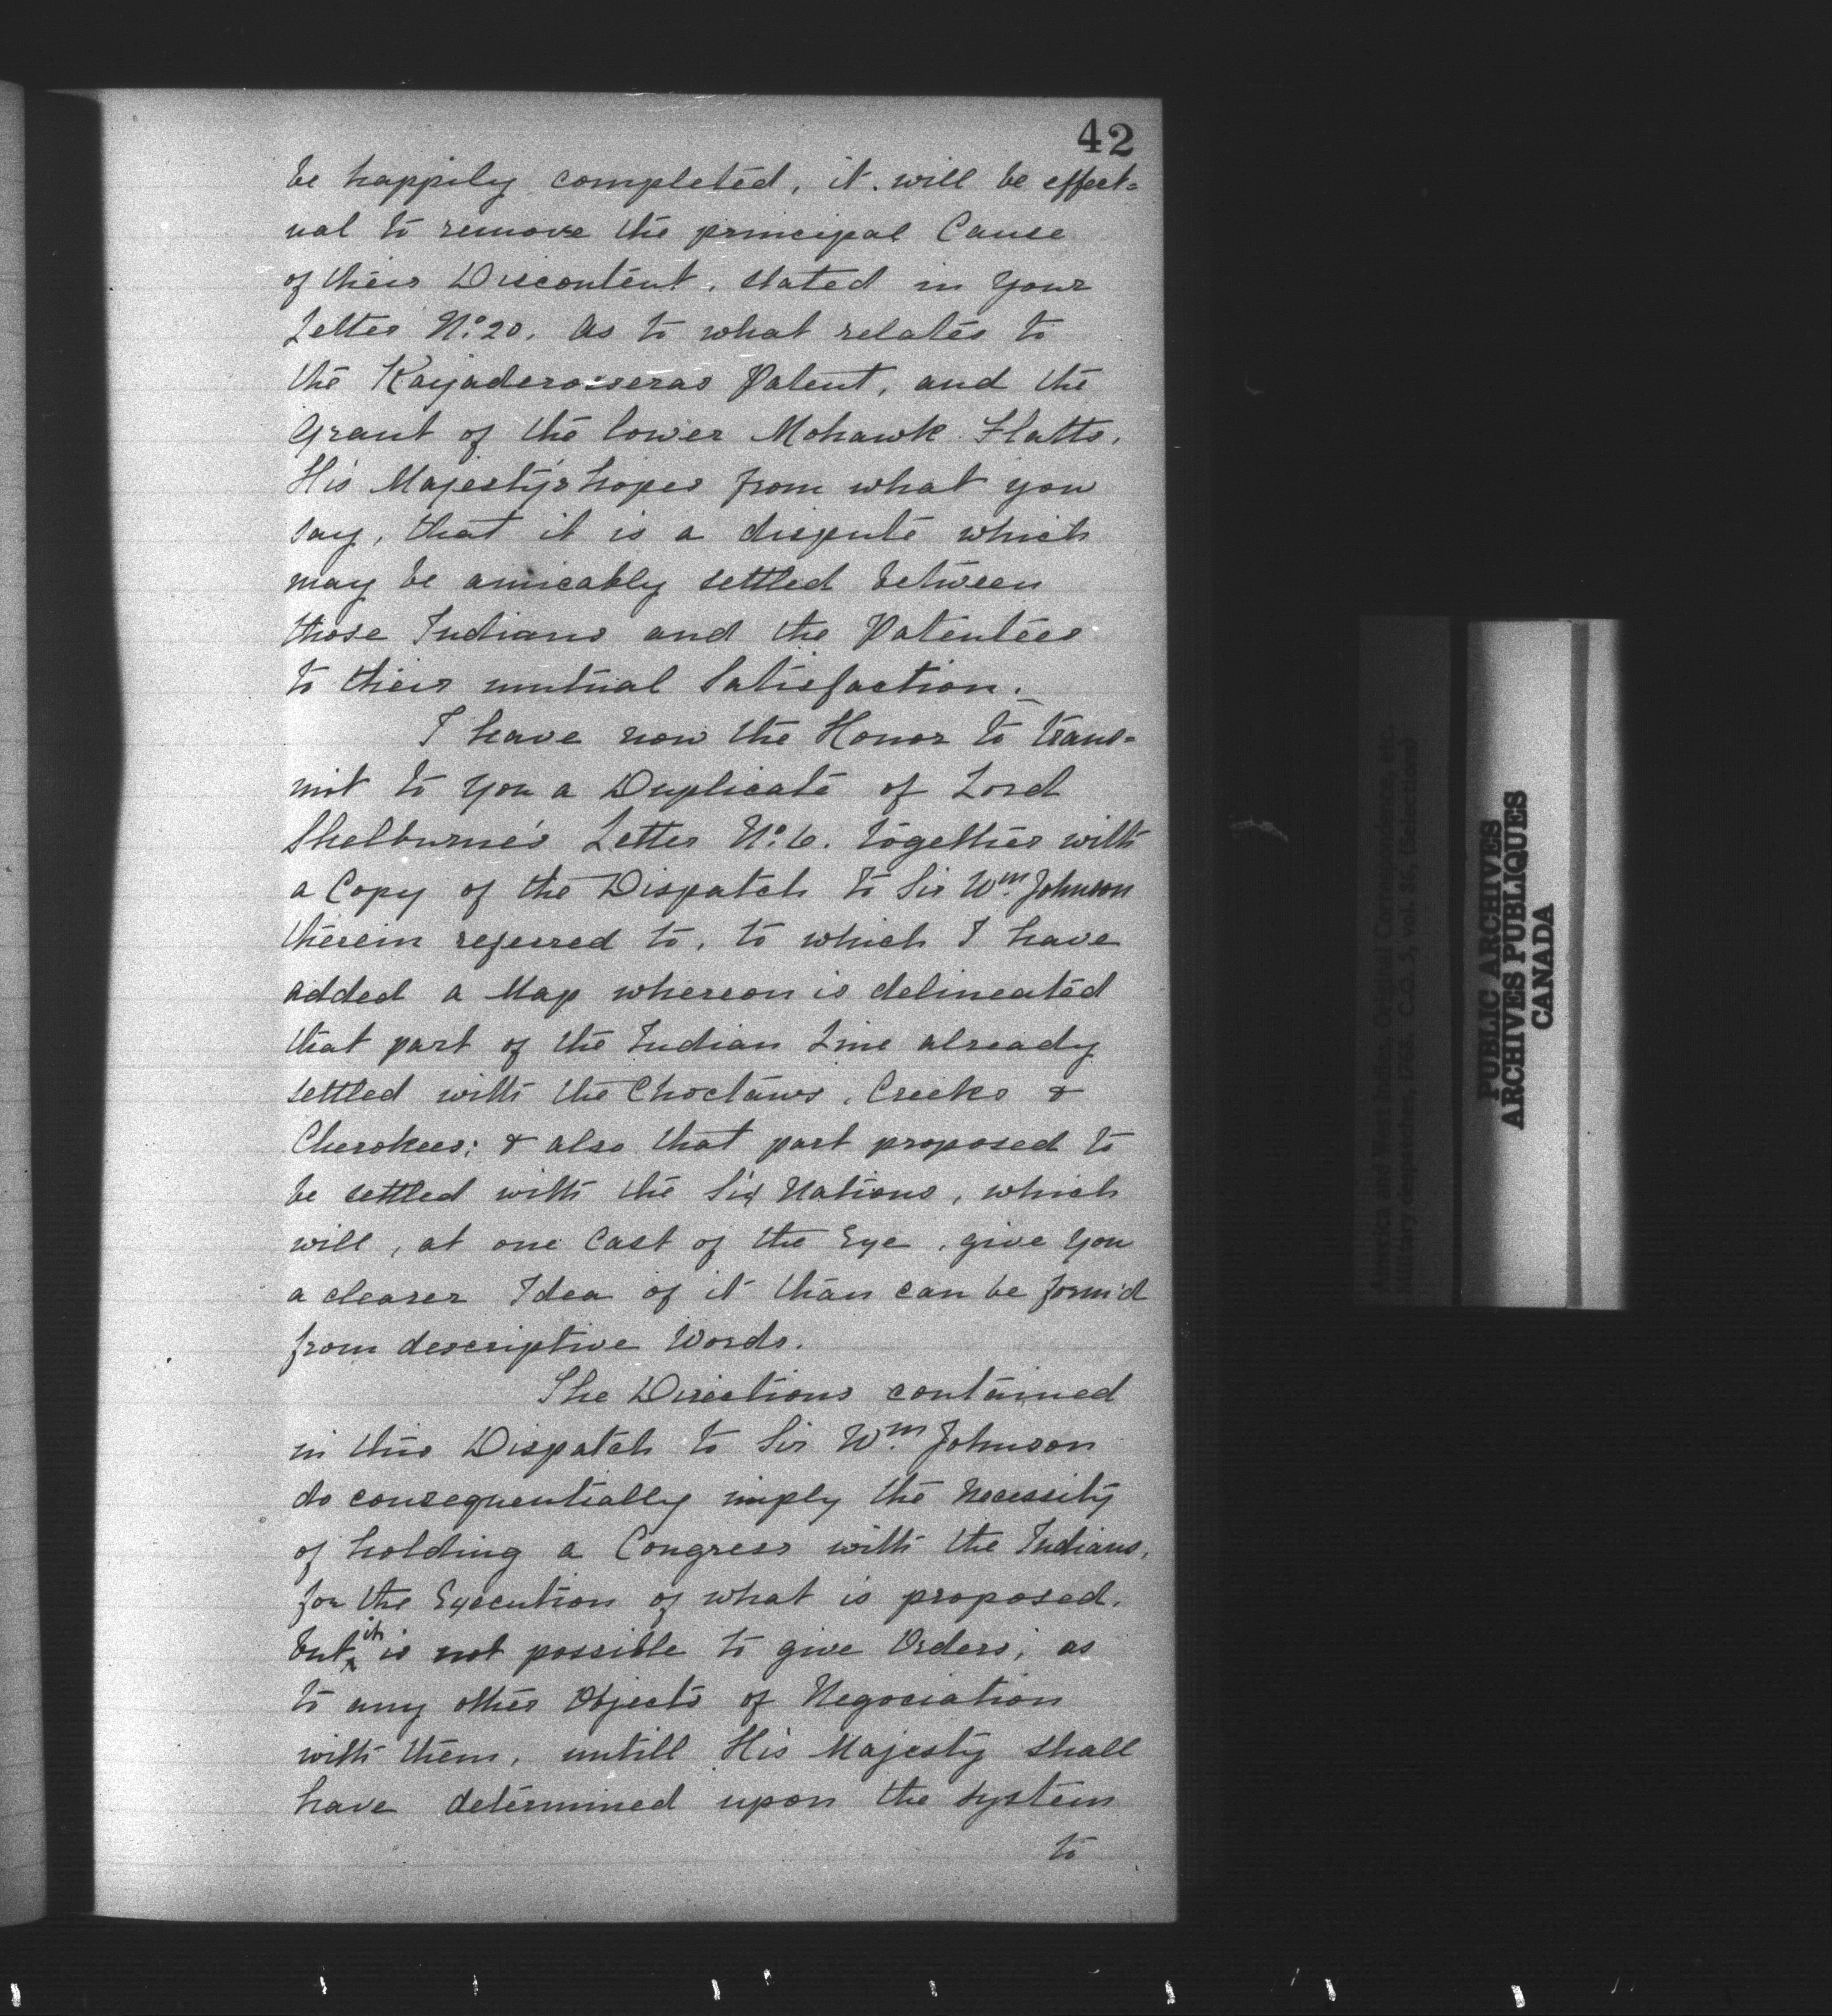 42
be happily completed, it will be effect=
ual to remove the principal Cause
of their Discontent, stated in Your
Letter No. 20. As to what relates to
the Kayaderosseras Patent, and the
Grant of the lower Mohawk Flatts,
His Majesty's hopes from what you
say, that it is a dispute which
may be amicably settled between
those Indians and the Patentees
to their mutual Satisfaction.
I have now the Honor to trans=
mit to you a Duplicate of Lord
Shelburne's Letter No. 6. together with
a Copy of the Dispatch to Sir Wm. Johnson
therein referred to, to which I have
added a Map whereon is delineated
that part of the Indian Line already
settled with the Choctaws, Creeks &
Cherokees; & also that part proposed to
be settled with the Six Nations, which
will, at one Cast of the Eye, give You
a clearer Idea of it than can be form'd
from descriptive Words.
The Directions contained
in this Dispatch to Sir Wm. Johnson
do consequentially imply the Necessity
of holding a Congress with the Indians,
for the Execution of what is proposed.
but it is not possible to give Orders, as
to any other Objects of Negociation
with them, untill His Majesty shall
have determined upon the system
to
America and West Indies, Original Correspondence, etc.
Military despatches, 1768. C.O. 5, vol. 86, (Selection)
PUBLIC ARCHIVES
ARCHIVES PUBLIQUES
CANADA